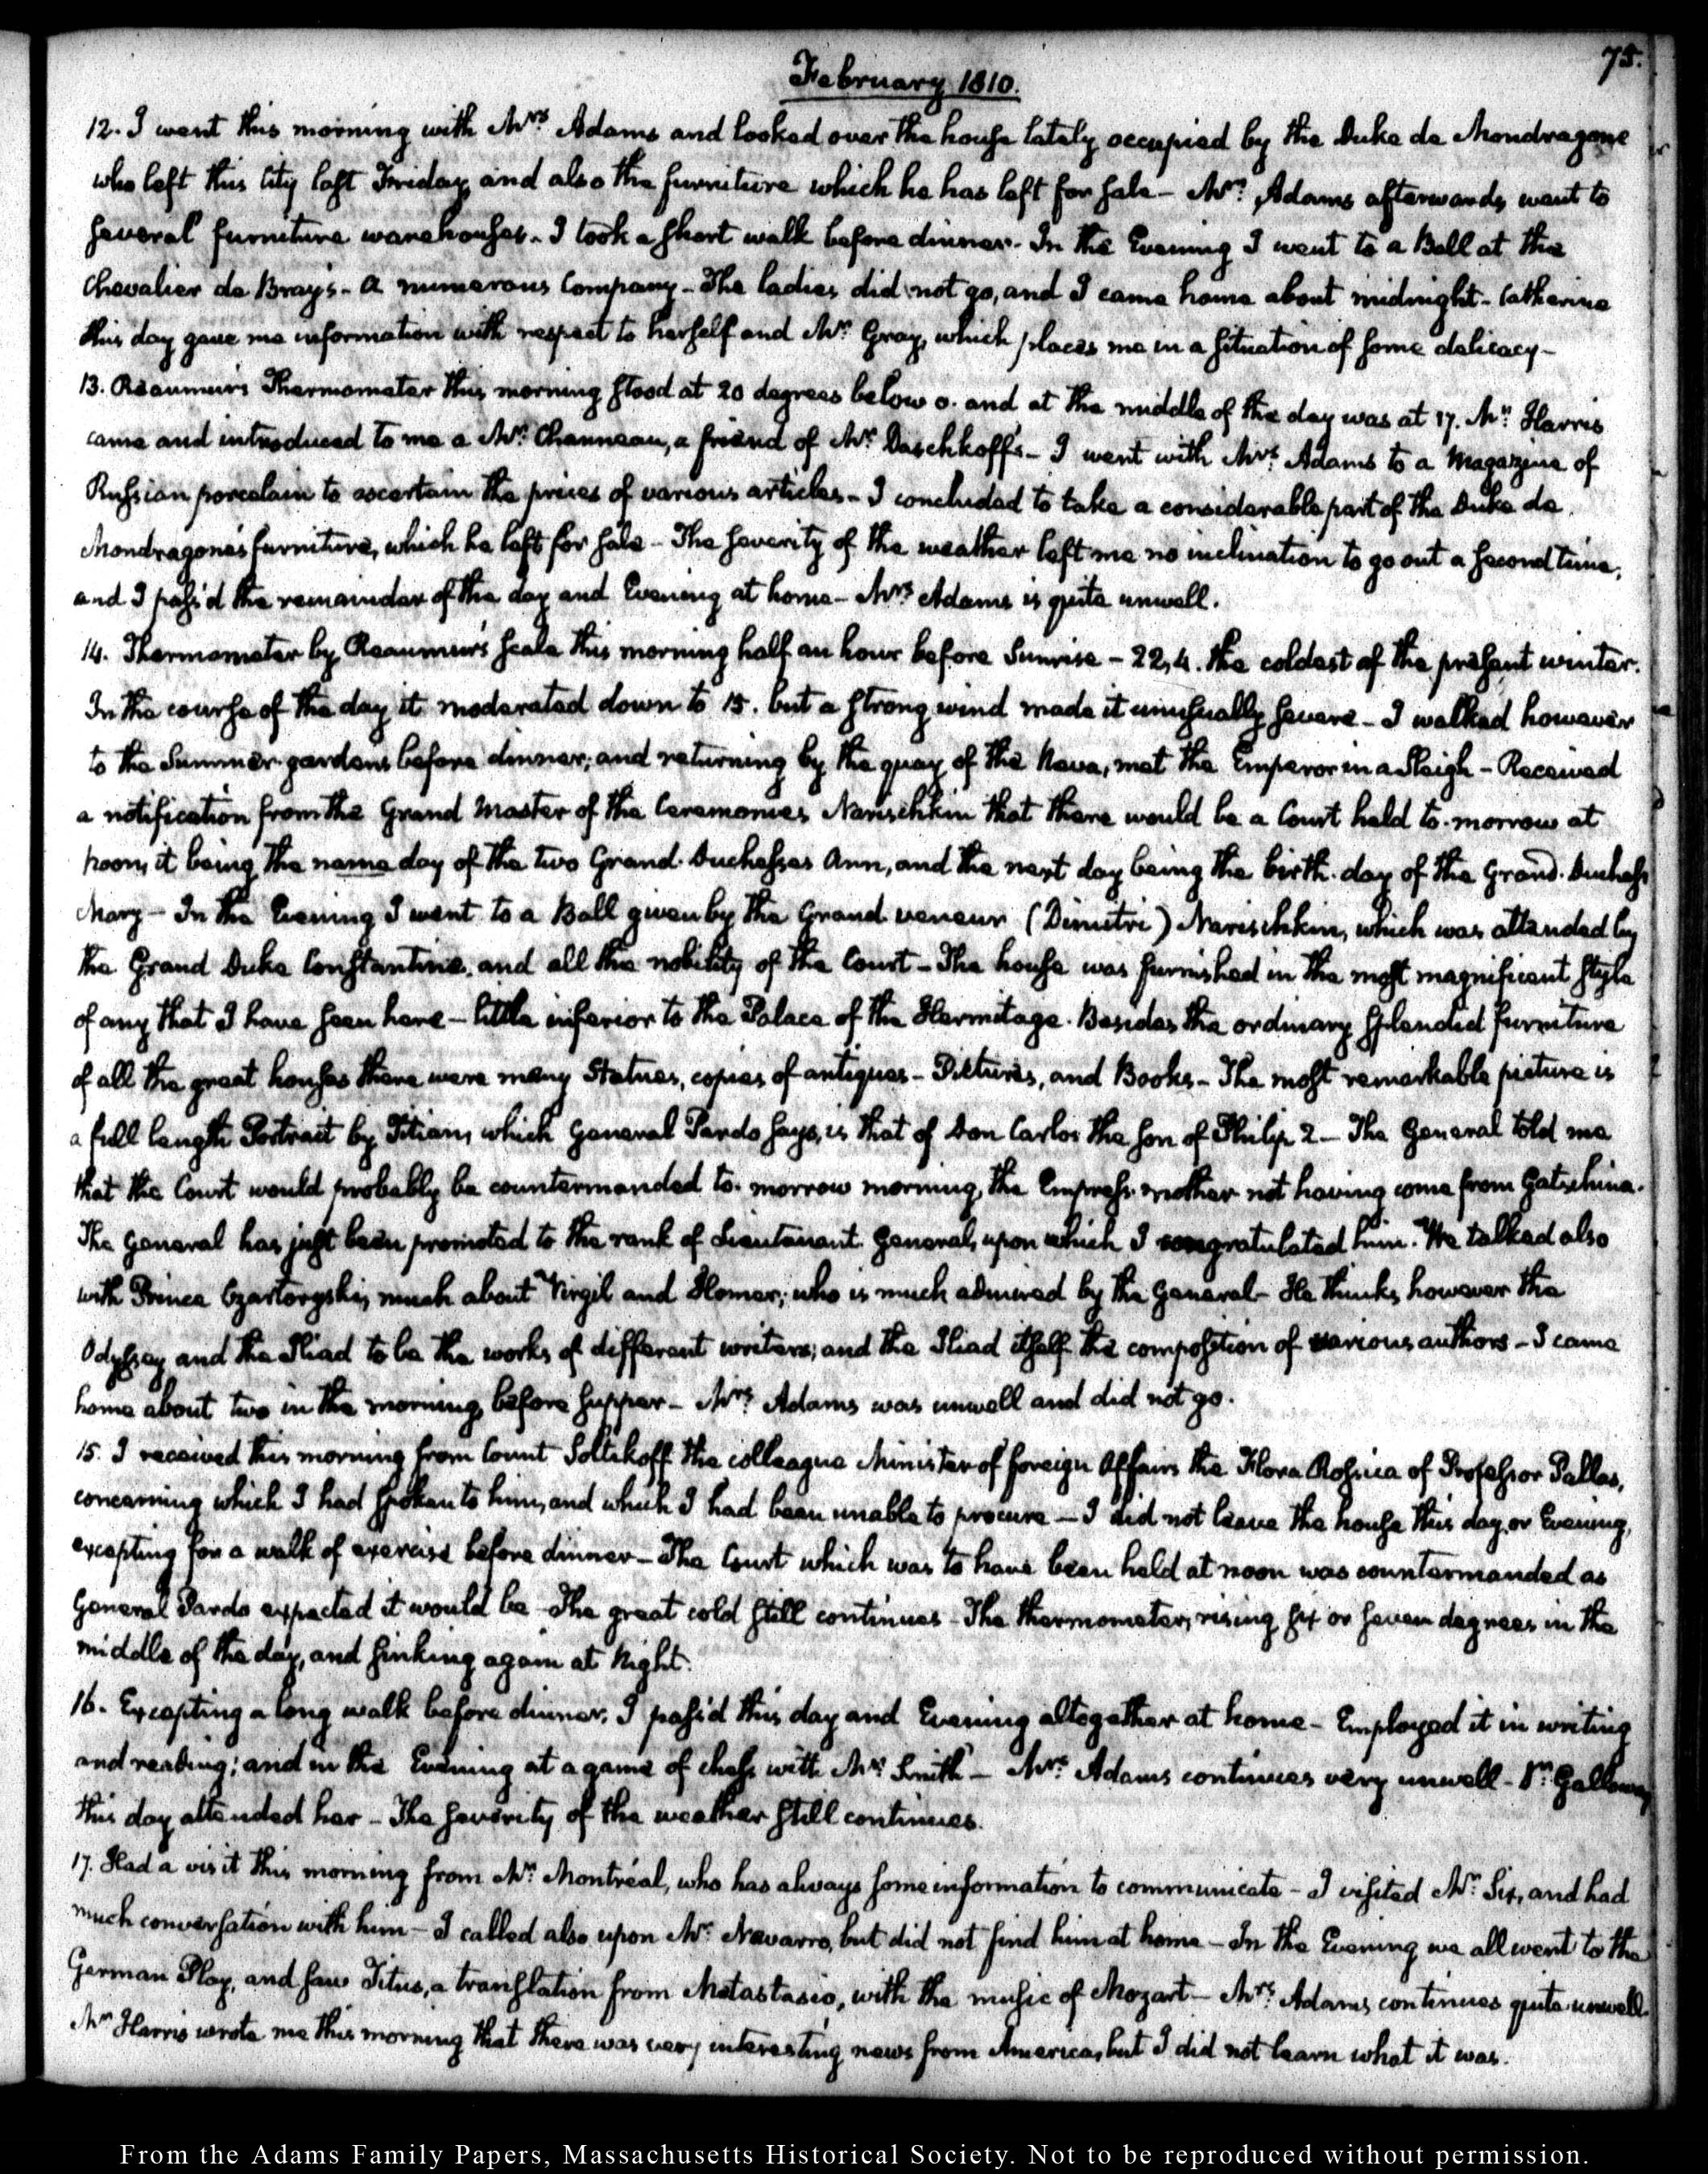 75.
February 1810.
12. I went this morning with Mrs. Adams and looked over the house lately occupied by the Duke de Mondragone
who left this City last Friday, and also the furniture which he has left for sale — Mrs. Adams afterwards went to
several furniture warehouses. I took a short walk before dinner. In the Evening I went to a Ball at the
Chevalier de Bray's - A numerous Company - The ladies did not go, and I came home about midnight - Catherine
this day gave me information with respect to herself and Mr. Gray, which places me in a situation of some delicacy -
13. Reaumur's Thermometer this morning stood at 20 degrees below 0. and at the middle of the day was at 17. Mr. Harris
came and introduced to me a Mr. Channeau, a friend of Mr. Daschkoff's - I went with Mrs. Adams to a Magazine of
Russian porcelain to ascertain the prices of various articles - I concluded to take a considerable part of the Duke de
Mondragone's furniture, which he left for sale - The severity of the weather left me no inclination to go out a second time,
and I pass'd the remainder of the day and Evening at home - Mrs. Adams is quite unwell.
14. Thermometer by Reaumur's scale this morning half an hour before Sunrise - 22,4. the coldest of the present winter.
In the course of the day it moderated down to 15. but a strong wind made it unusually severe - I walked however
to the Summer gardens before dinner; and returning by the quay of the Neva, met the Emperor in a Sleigh - Received
a notification from the Grand Master of the Ceremonies Narischkin that there would be a Court held to-morrow at
noon, it being the name day of the two Grand-Duchesses Ann, and the next day being the birth-day of the Grand-Duchess
Mary - In the Evening I went to a Ball given by the Grand veneur (Dimitri) Narischkin, which was attended by
the Grand Duke Constantine, and all the nobility of the Court - The house was furnished in the most magnificent style
of any that I have seen here - little inferior to the Palace of the Hermitage. Besides the ordinary splendid furniture
of all the great houses there were many Statues, copies of antiques - Pictures, and Books - The most remarkable picture is
a full length Portrait by Titian, which General Pardo says, is that of Don Carlos the son of Philip 2 - The General told me
that the Court would probably be countermanded to-morrow morning, the Empress-mother not having come from Gatschina.
The General has just been promoted to the rank of Lieutenant-General, upon which I congratulated him. We talked also
with Prince Czartorysky, much about Virgil and Homer; who is much admired by the General - He thinks, however the
Odyssey and the Iliad to be the works of different writers; and the Iliad itself the composition of various authors - I came
home about two in the morning, before supper - Mrs. Adams was unwell and did not go.
15. I received this morning from Count Soltikoff the colleague Minister of foreign Affairs the Flora Rossica of Professor Pallas,
concerning which I had spoken to him, and which I had been unable to procure - I did not leave the house this day, or Evening,
excepting for a walk of exercise before dinner - The Court which was to have been held at noon was countermanded as
General Pardo expected it would be - The great cold still continues - The thermometer, rising six or seven degrees in the
middle of the day, and sinking again at Night.
16. Excepting a long walk before dinner, I pass'd this day and Evening altogether at home - Employed it in writing
and reading; and in the Evening at a game of chess with Mr. Smith - Mrs. Adams continues very unwell - Dr. Galloway
this day attended her - The severity of the weather still continues.
17. Had a visit this morning from Mr. Montréal, who has always some information to communicate - I visited Mr. Six, and had
much conversation with him - I called also upon Mr. Navarro, but did not find him at home - In the Evening we all went to the
German Play, and saw Titus, a translation from Metastasio, with the music of Mozart - Mrs. Adams continues quite unwell.
Mr. Harris wrote me this morning that there was very interesting news from America, but I did not learn what it was.
From the Adams Family Papers, Massachusetts Historical Society. Not to be reproduced without permission.